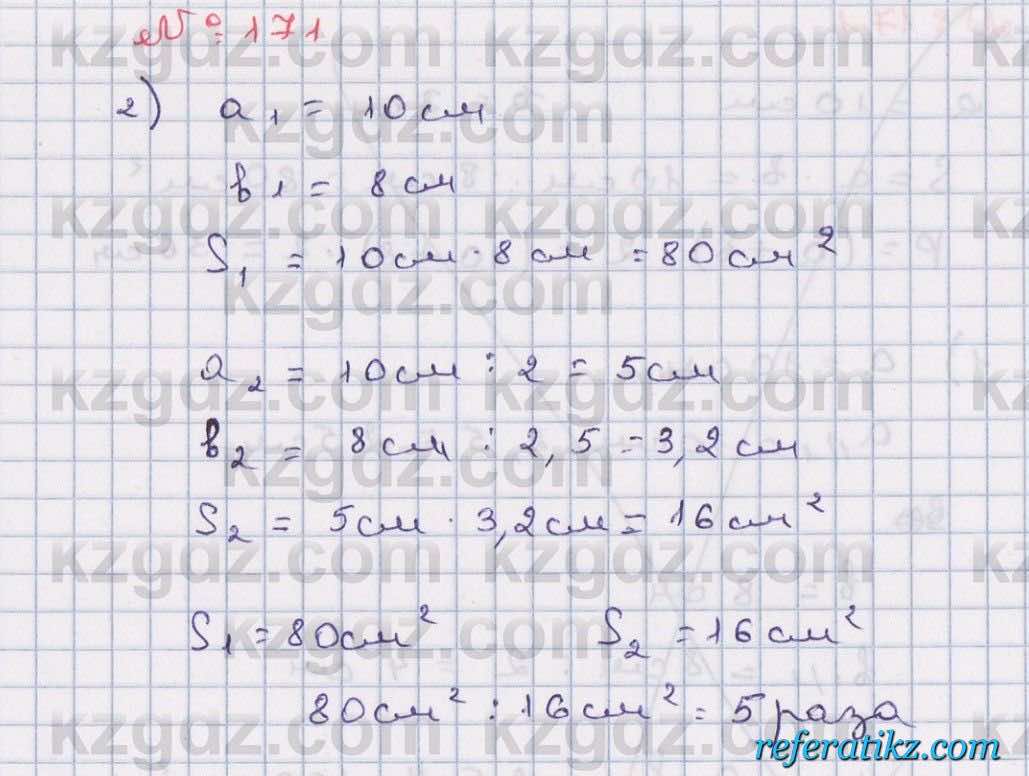 № 171
2) a₁ = 10 см
в₁ = 8 см
S₁ = 10 см · 8 см = 80 см²
a₂ = 10 см : 2 = 5 см
в₂ = 8 см : 2,5 = 3,2 см
S₂ = 5 см · 3,2 см = 16 см²
S₁ = 80 см² S₂ = 16 см²
80 см² : 16 см² = 5 раза
kzgdz.com
referatikz.com